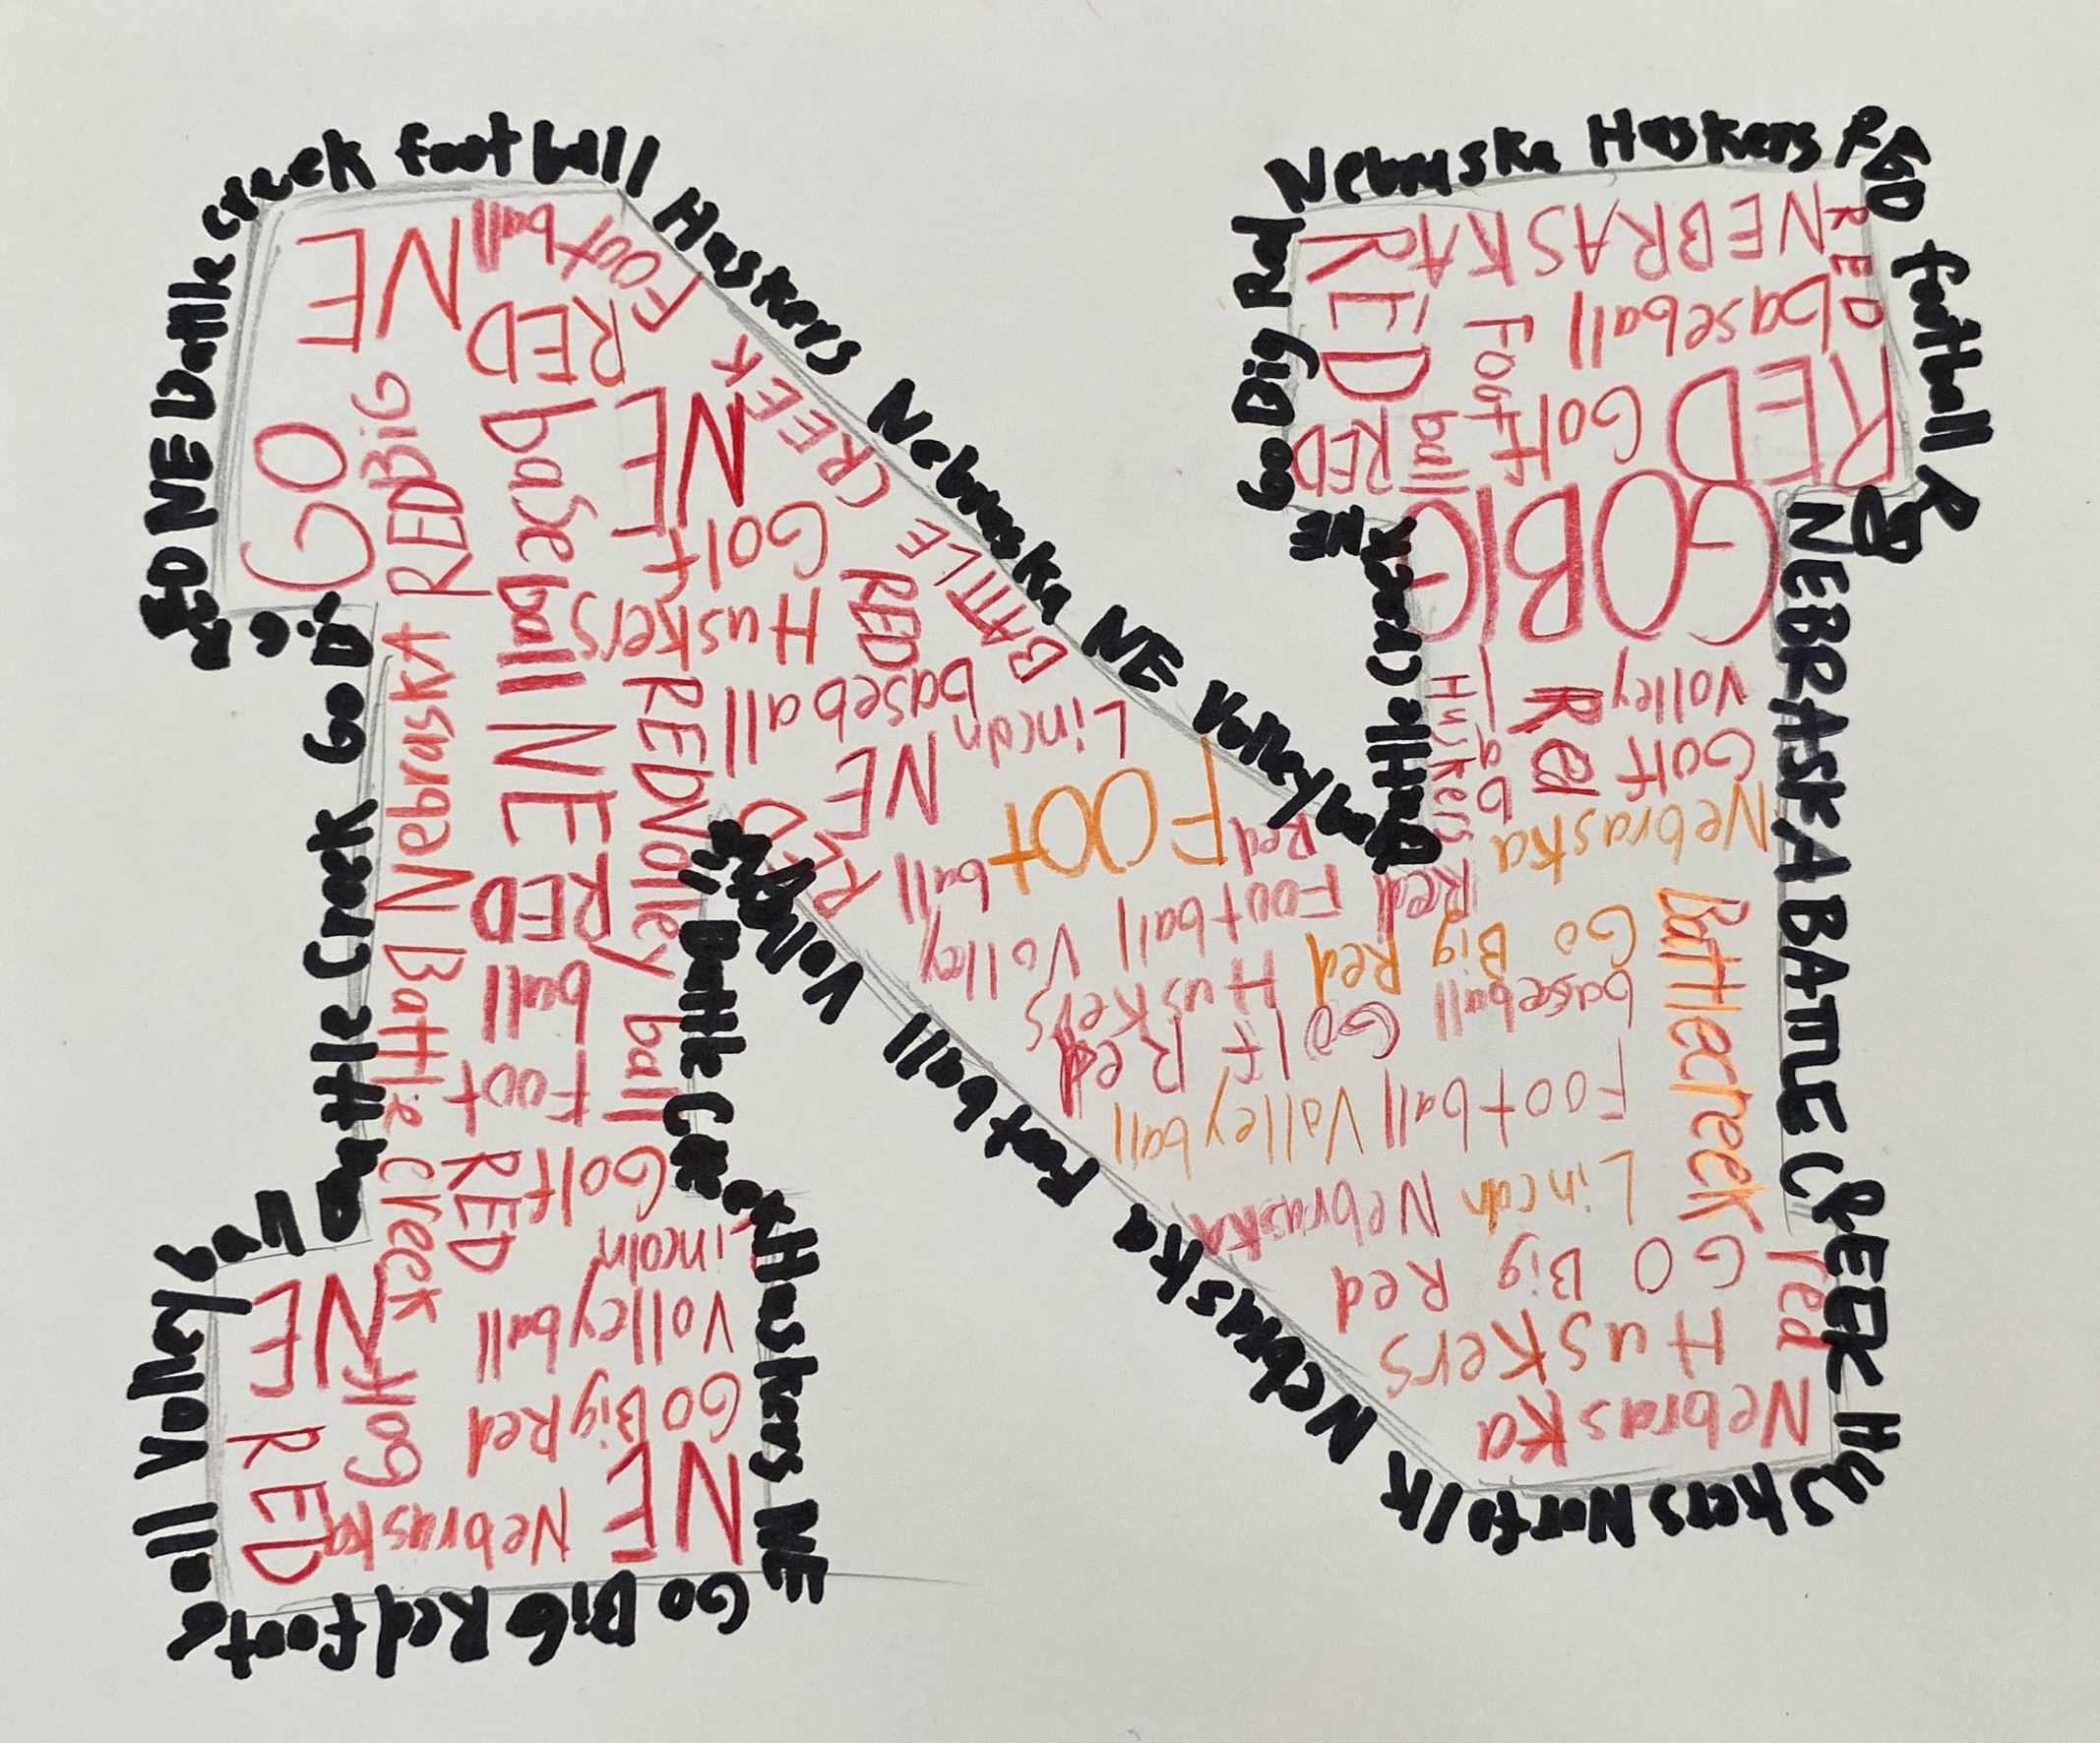 RED NE Battle creek football Huskers Nebraska NE Volleyball
Go Big Red Nebraska Huskers RED football RED
NEBRASKA BATTLE CREEK Huskers Norfolk Nebraska Football Volleyball
NE Battle Creek
Battle Creek Go Big
Battle Creek Huskers NE
Go BiG Red football Volleyball
NE
Foot
ball
RED
GO
BiG
RED
base
ball
NE
Golf
Huskers
BATTLE CREEK
RED
Nebraska
NE
RED
baseball
Lincoln
NE
RED
Volley
ball
N
RED
Foot
ball
Battle
creek
RED
Golf
Lincoln
Volleyball
NE
Go Big Red
RED
Nebraska
NE
Foot
ball
Red
Football Volley
Red
Huskers
Go Big Red
Golf Red
baseball
Football Volleyball
Lincoln Nebraska
Battlecreek
GO Big Red
red
Huskers
Nebraska
NEBRASKA
RED
RED
baseball
Foot
ball
Golf
RED
RED
GO BIG
Red
Volley
Huskers
Golf
Nebraska